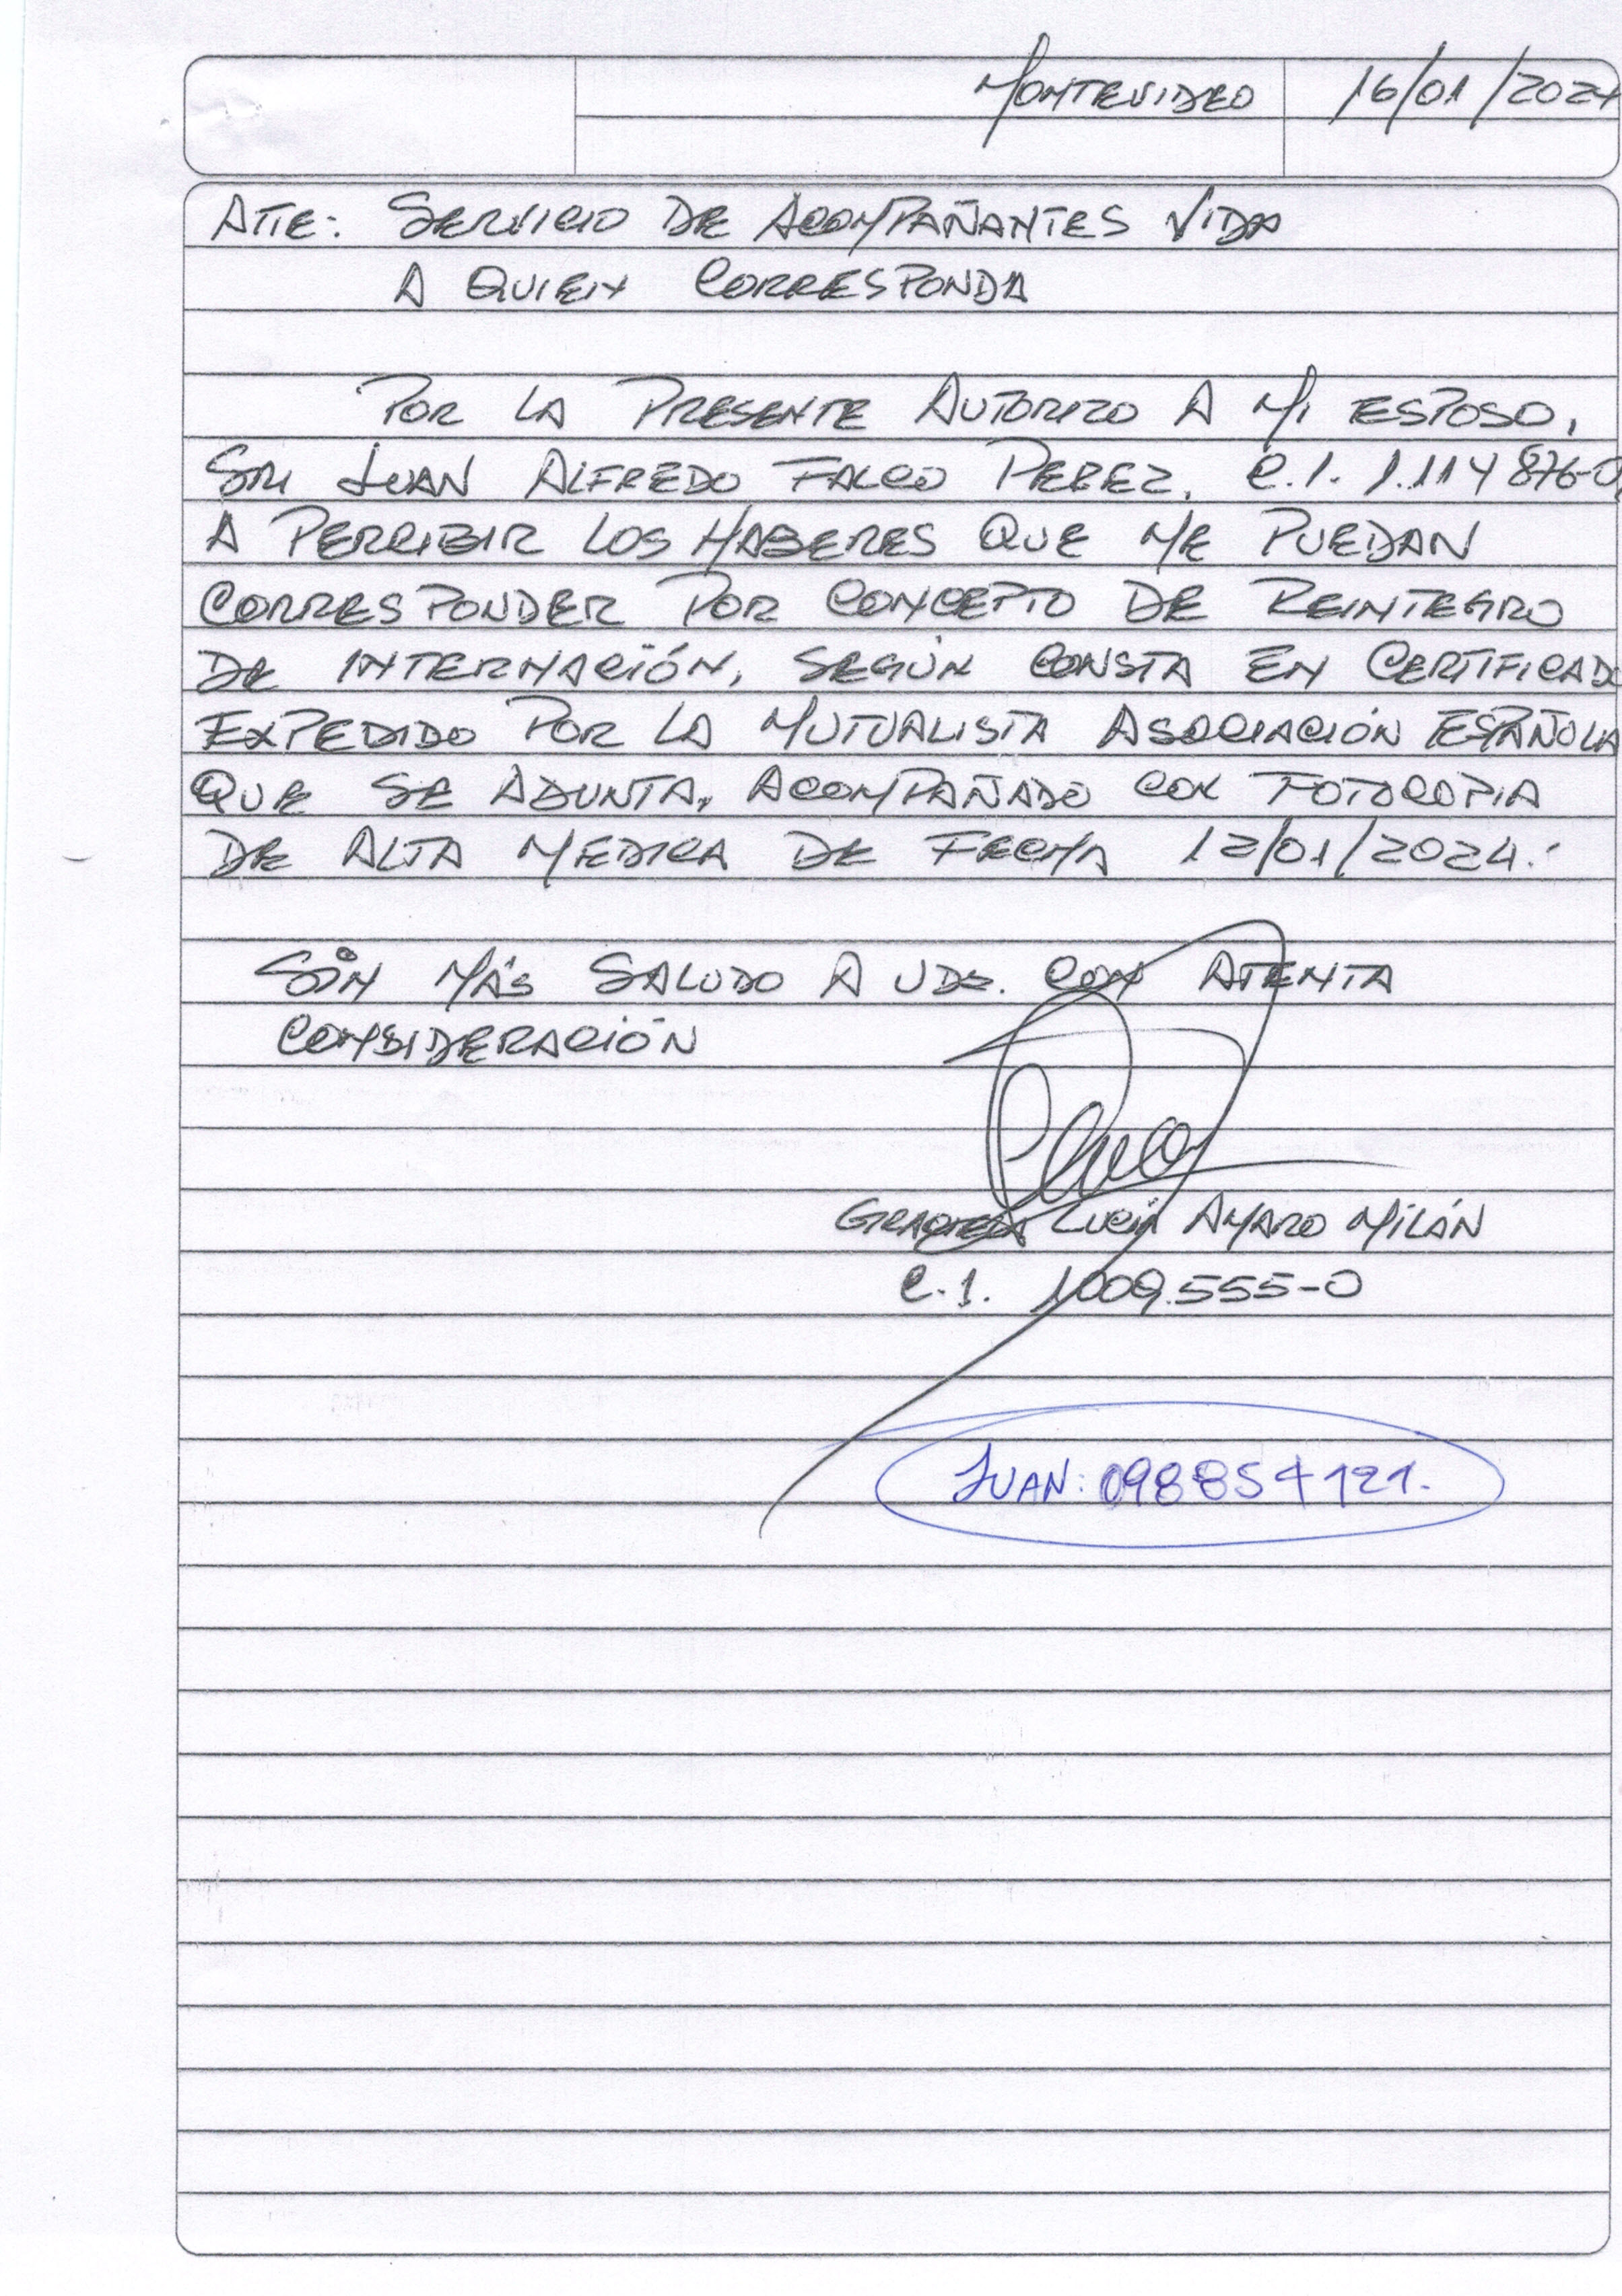 MONTEVIDEO 16/01/2024
ATTE: SERVICIO DE ACOMPAÑANTES VIDA
A QUIEN CORRESPONDA
POR LA PRESENTE AUTORIZO A MI ESPOSO,
SR JUAN ALFREDO FALCO PEREZ, C.I. 1.114876-0,
A PERCIBIR LOS HABERES QUE ME PUEDAN
CORRESPONDER POR CONCEPTO DE REINTEGRO
DE INTERNACIÓN, SEGÚN CONSTA EN CERTIFICADO
EXPEDIDO POR LA MUTUALISTA ASOCIACIÓN ESPAÑOLA
QUE SE ADJUNTA, ACOMPAÑADO CON FOTOCOPIA
DE ALTA MEDICA DE FECHA 12/01/2024.-
SIN MÁS SALUDO A UDS. CON ATENTA
CONSIDERACIÓN
GRACIELA LUCIA AMARO MILÁN
C.I. 1009.555-0
JUAN: 098854121.